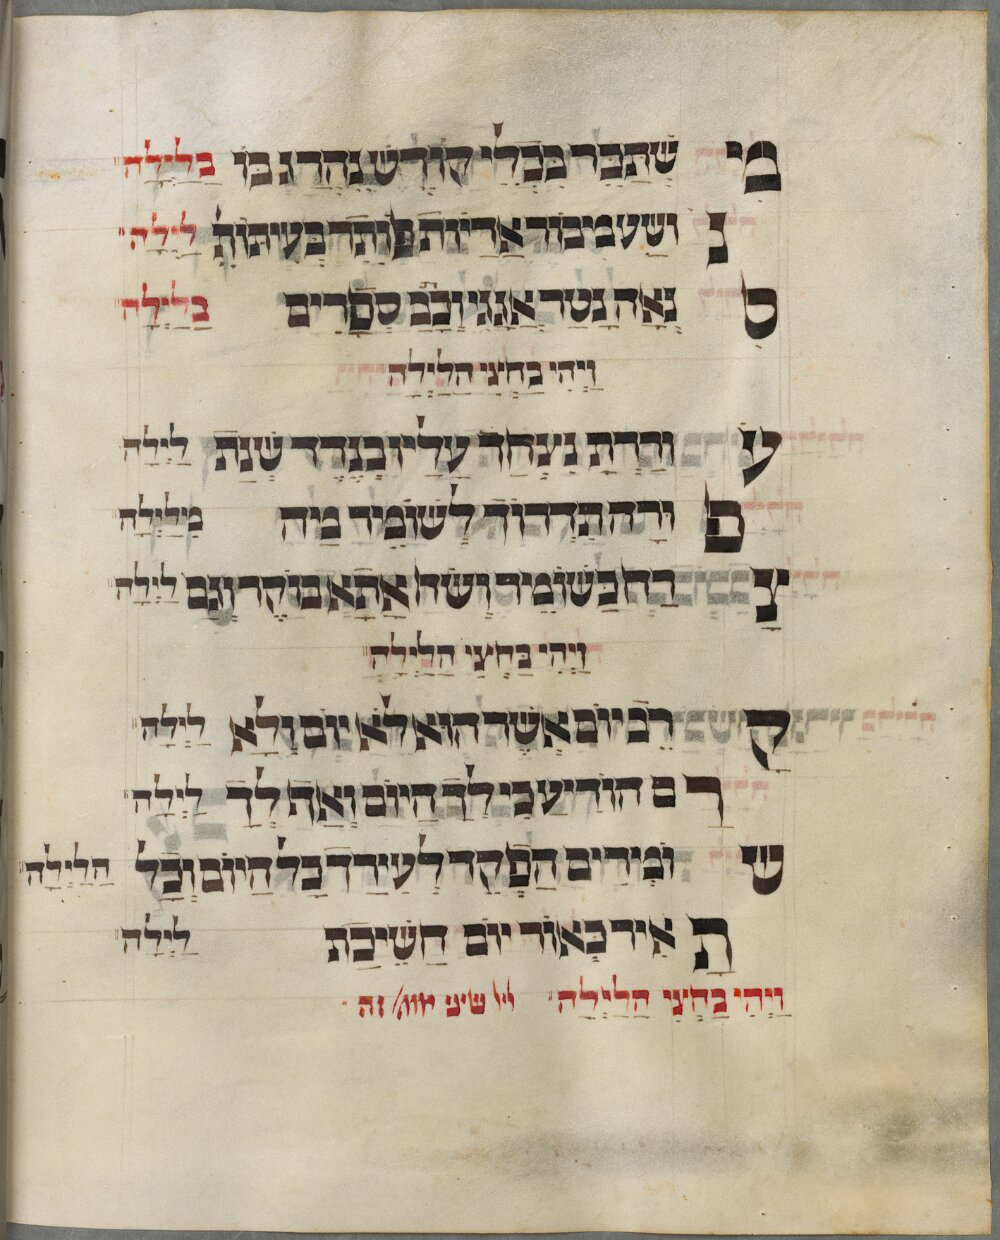 מי שתכר בכלי קודש נהרג בו בלילה
נ ושע מיבור אריות פותר בעיתותי לילה
ס נאה נטר אגגי וכתב ספרים בלילה
ויהי בחצי הלילה
ע וררת נצחך עליו בנדד שנת לילה
פ ורה תדרוך לשומיר מיה מלילה
צ רח כשומיר ושח אתא בוקר וגם לילה
ויהי בחצי הלילה
ק רב יום אשר הוא לא יום ולא לילה
ר ם הודיע כי לך היום ואף לך לילה
ש ומירים הפקד לעירך כל היום וכל הלילה
ת איר כאור יום חשיכת לילה
ויהי בחצי הלילה זה